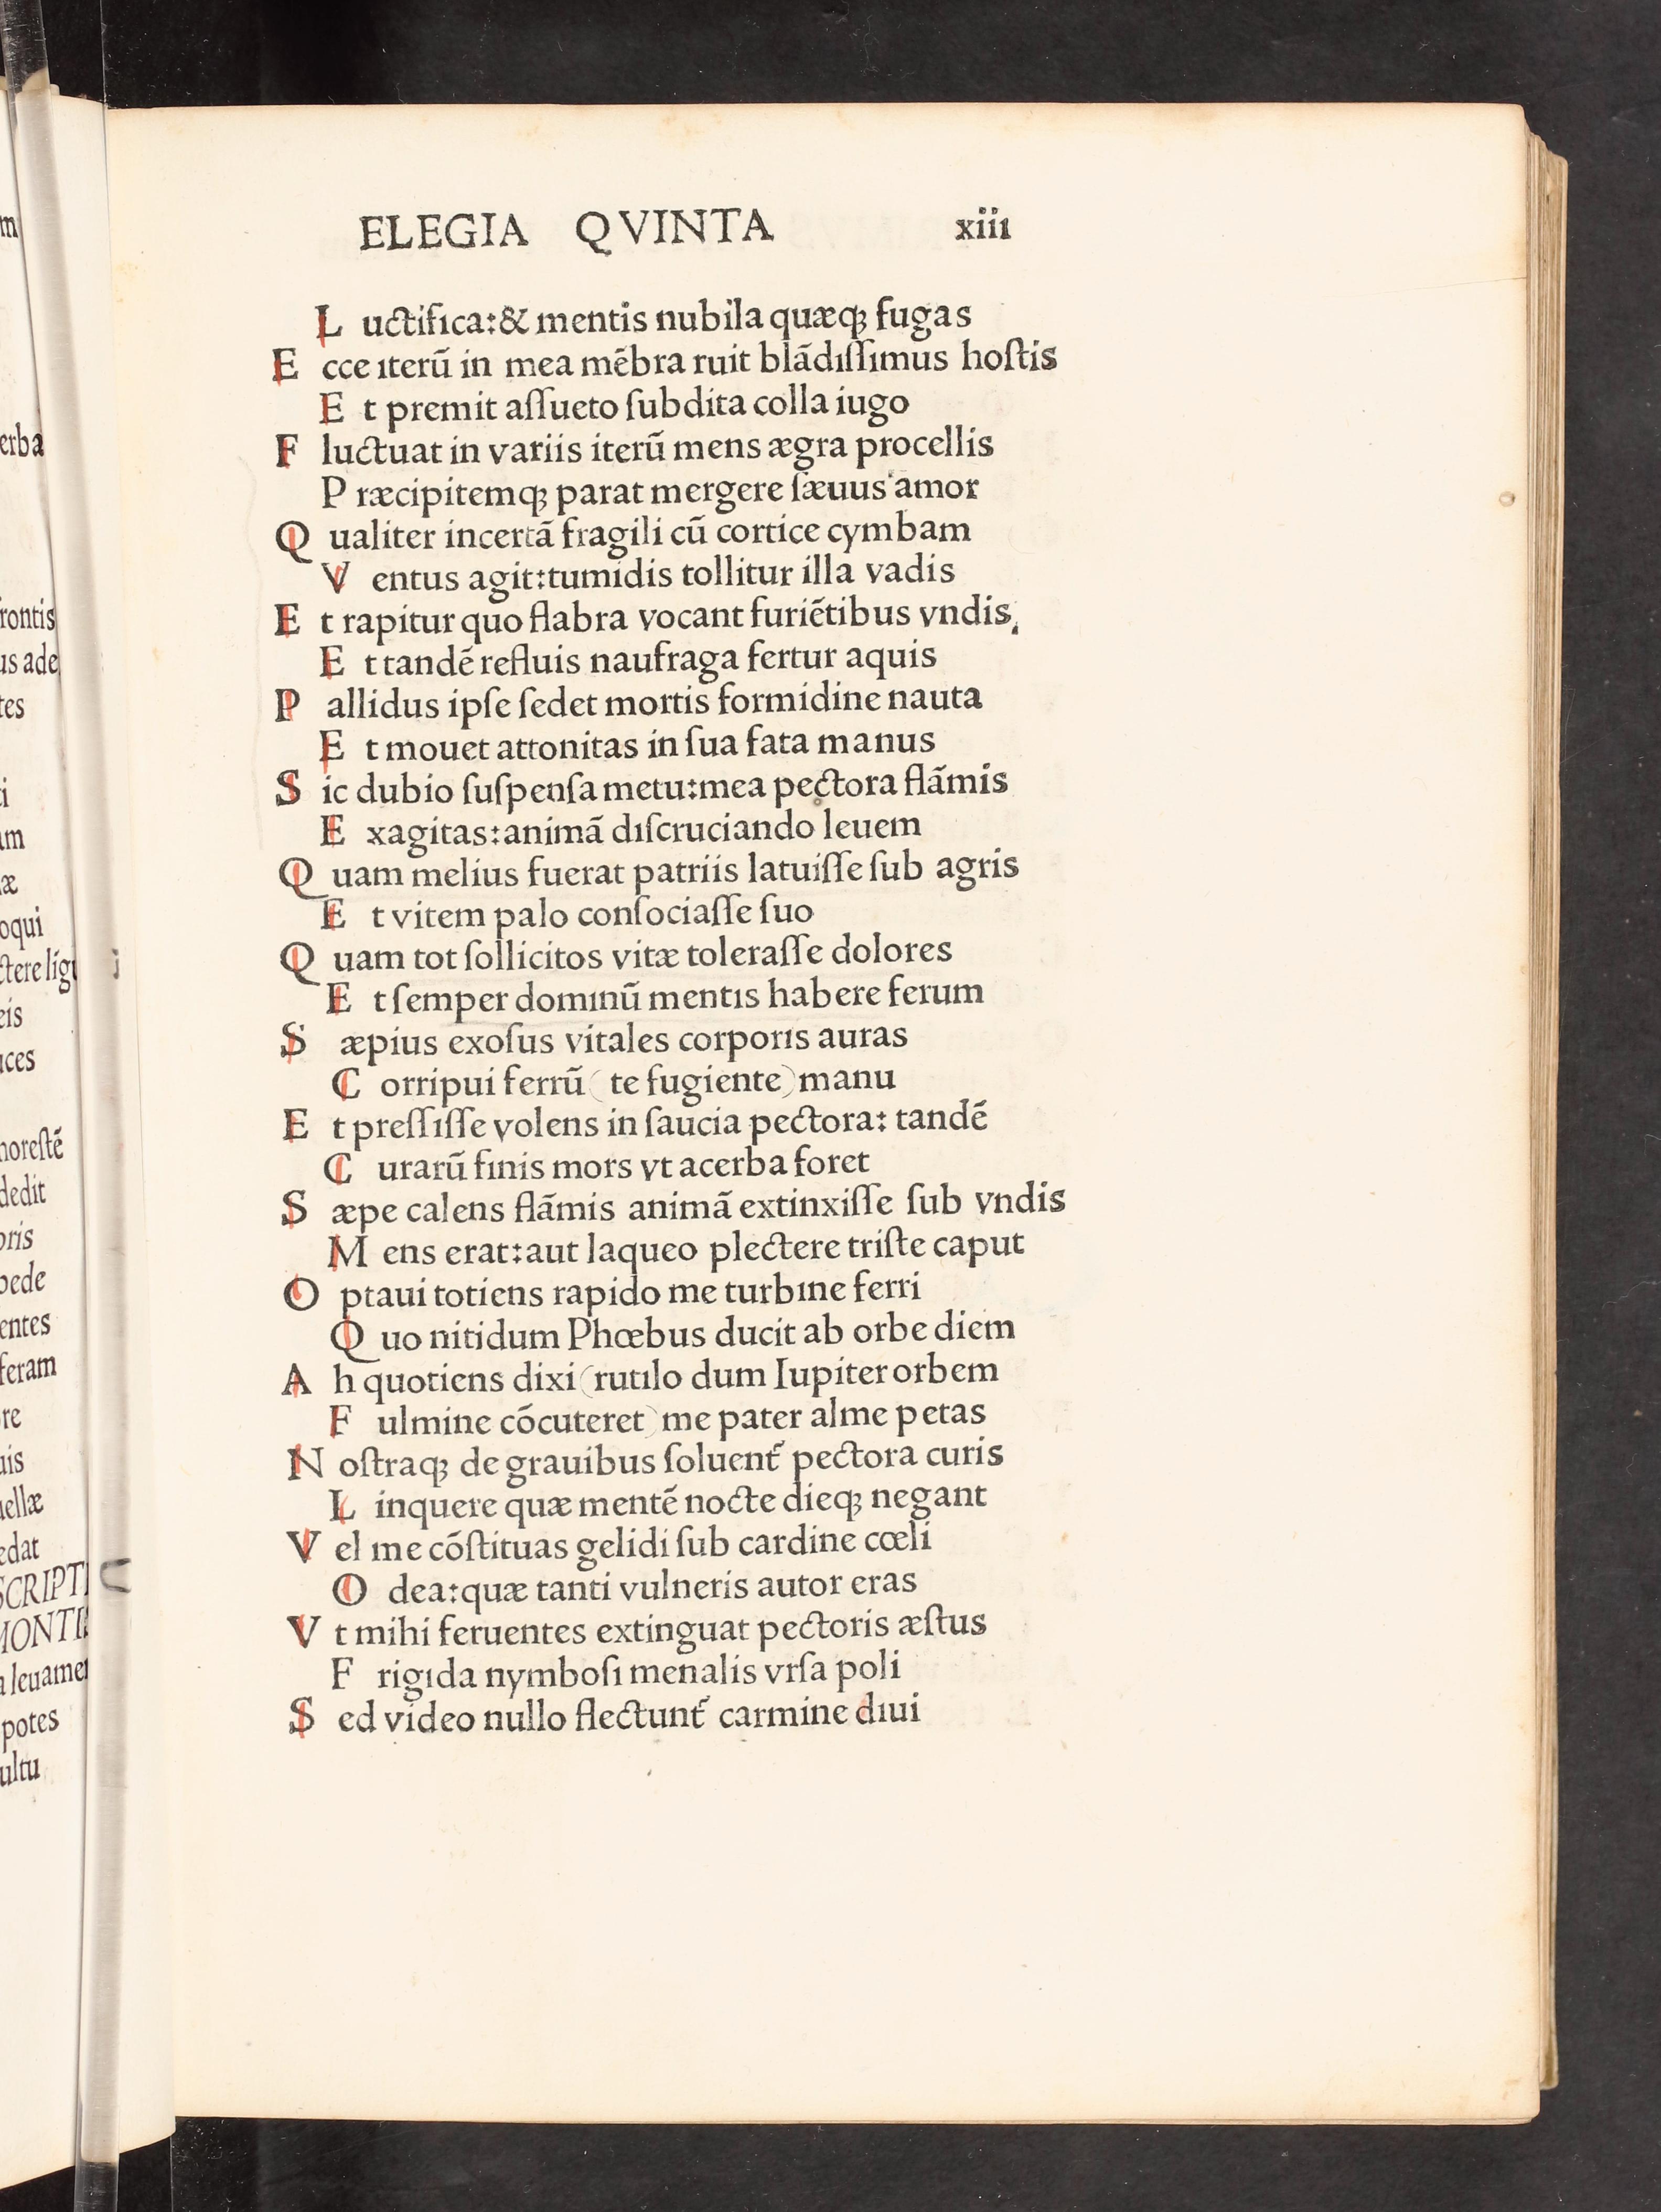 ELEGIA QVINTA xiii
L uctifica:& mentis nubila quæqꝫ fugas
E cce iterū in mea mēbra ruit blādiſſimus hoſtis
E t premit aſſueto ſubdita colla iugo
F luctuat in variis iterū mens ægra procellis
P ræcipitemqꝫ parat mergere ſæuus amor
Q ualiter incertā fragili cū cortice cymbam
V entus agit:tumidis tollitur illa vadis
E t rapitur quo flabra vocant furiētibus vndis.
E t tandē refluis naufraga fertur aquis
P allidus ipſe ſedet mortis formidine nauta
E t mouet attonitas in ſua fata manus
S ic dubio ſuſpenſa metu:mea pectora flāmis
E xagitas:animā diſcruciando leuem
Q uam melius fuerat patriis latuiſſe ſub agris
E t vitem palo conſociaſſe ſuo
Q uam tot ſollicitos vitæ toleraſſe dolores
E t ſemper dominū mentis habere ferum
S æpius exoſus vitales corporis auras
C orripui ferrū (te fugiente) manu
E t preſſiſſe volens in ſaucia pectora: tandē
C urarū finis mors vt acerba foret
S æpe calens flāmis animā extinxiſſe ſub vndis
M ens erat:aut laqueo plectere triſte caput
O ptaui totiens rapido me turbine ferri
Q uo nitidum Phœbus ducit ab orbe diem
A h quotiens dixi (rutilo dum Iupiter orbem
F ulmine cōcuteret) me pater alme petas
N oſtraqꝫ de grauibus ſoluent᷑ pectora curis
L inquere quæ mentē nocte dieqꝫ negant
V el me cōſtituas gelidi ſub cardine cœli
O dea:quæ tanti vulneris autor eras
V t mihi feruentes extinguat pectoris æſtus
F rigida nymboſi menalis vrſa poli
S ed video nullo flectunt᷑ carmine diui